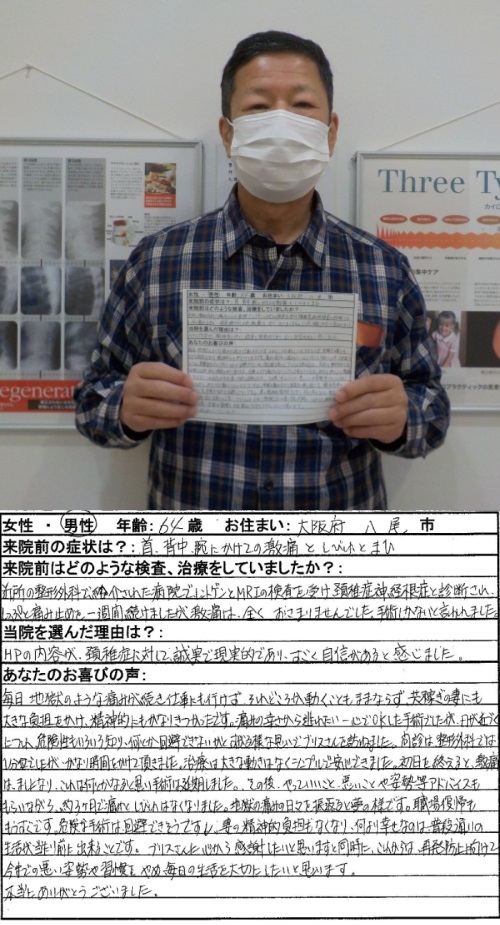 Three Ty
egenerat
女性 ・ 男性 年齢: 64 歳 お住まい: 大阪府 八尾 市
来院前の症状は?: 首、背中、腕にかけての激痛としびれとまひ
来院前はどのような検査、治療をしていましたか?:
近所の整形外科で紹介された病院でレントゲンとMRIの検査を受け頚椎症神経根症と診断され、
しっぷと痛み止めを一週間続けましたが激痛は、全くおさまりませんでした。手術しかないと言われました。
当院を選んだ理由は?:
HPの内容が、頚椎症に対して誠実で現実的であり、すごく自信があると感じました。
あなたのお喜びの声:
毎日地獄のような痛みが続き仕事にも行けず、それどころか動くこともままならず、共稼ぎの妻にも
大きな負担をかけ、精神的にもかなりきつかったです。痛みの辛さから逃れたい一心でOKした手術でしたが、日が近づく
につれ、危険性もいろいろ知り、何とか回避できないかと
思いでプリズさんを訪ねました。問診は整形外科では
かなり時間をかけて頂きました。治療は大きな動きはなくシンプルで安心できました。初日を終えると、激痛
はましになり、これは何とかなると思い手術は延期しました。その後、やっていいこと、悪いことや姿勢等アドバイスも
もらいながら、約3ヶ月で痛みとしびれはなくなりました。地獄の痛みの日々を振返ると夢の様です。職場復帰も
もうすぐです。危険な手術は回避できそうですし、妻の精神的負担もなくなり、何より幸せなのは普段通りの
生活が当り前に出来ることです。プリズさんに心から感謝したいと思いますと同時に、これからは、再発防止に向けて
今までの悪い姿勢や習慣をやめ毎日の生活を大切にしたいと思います。
本当にありがとうございました。